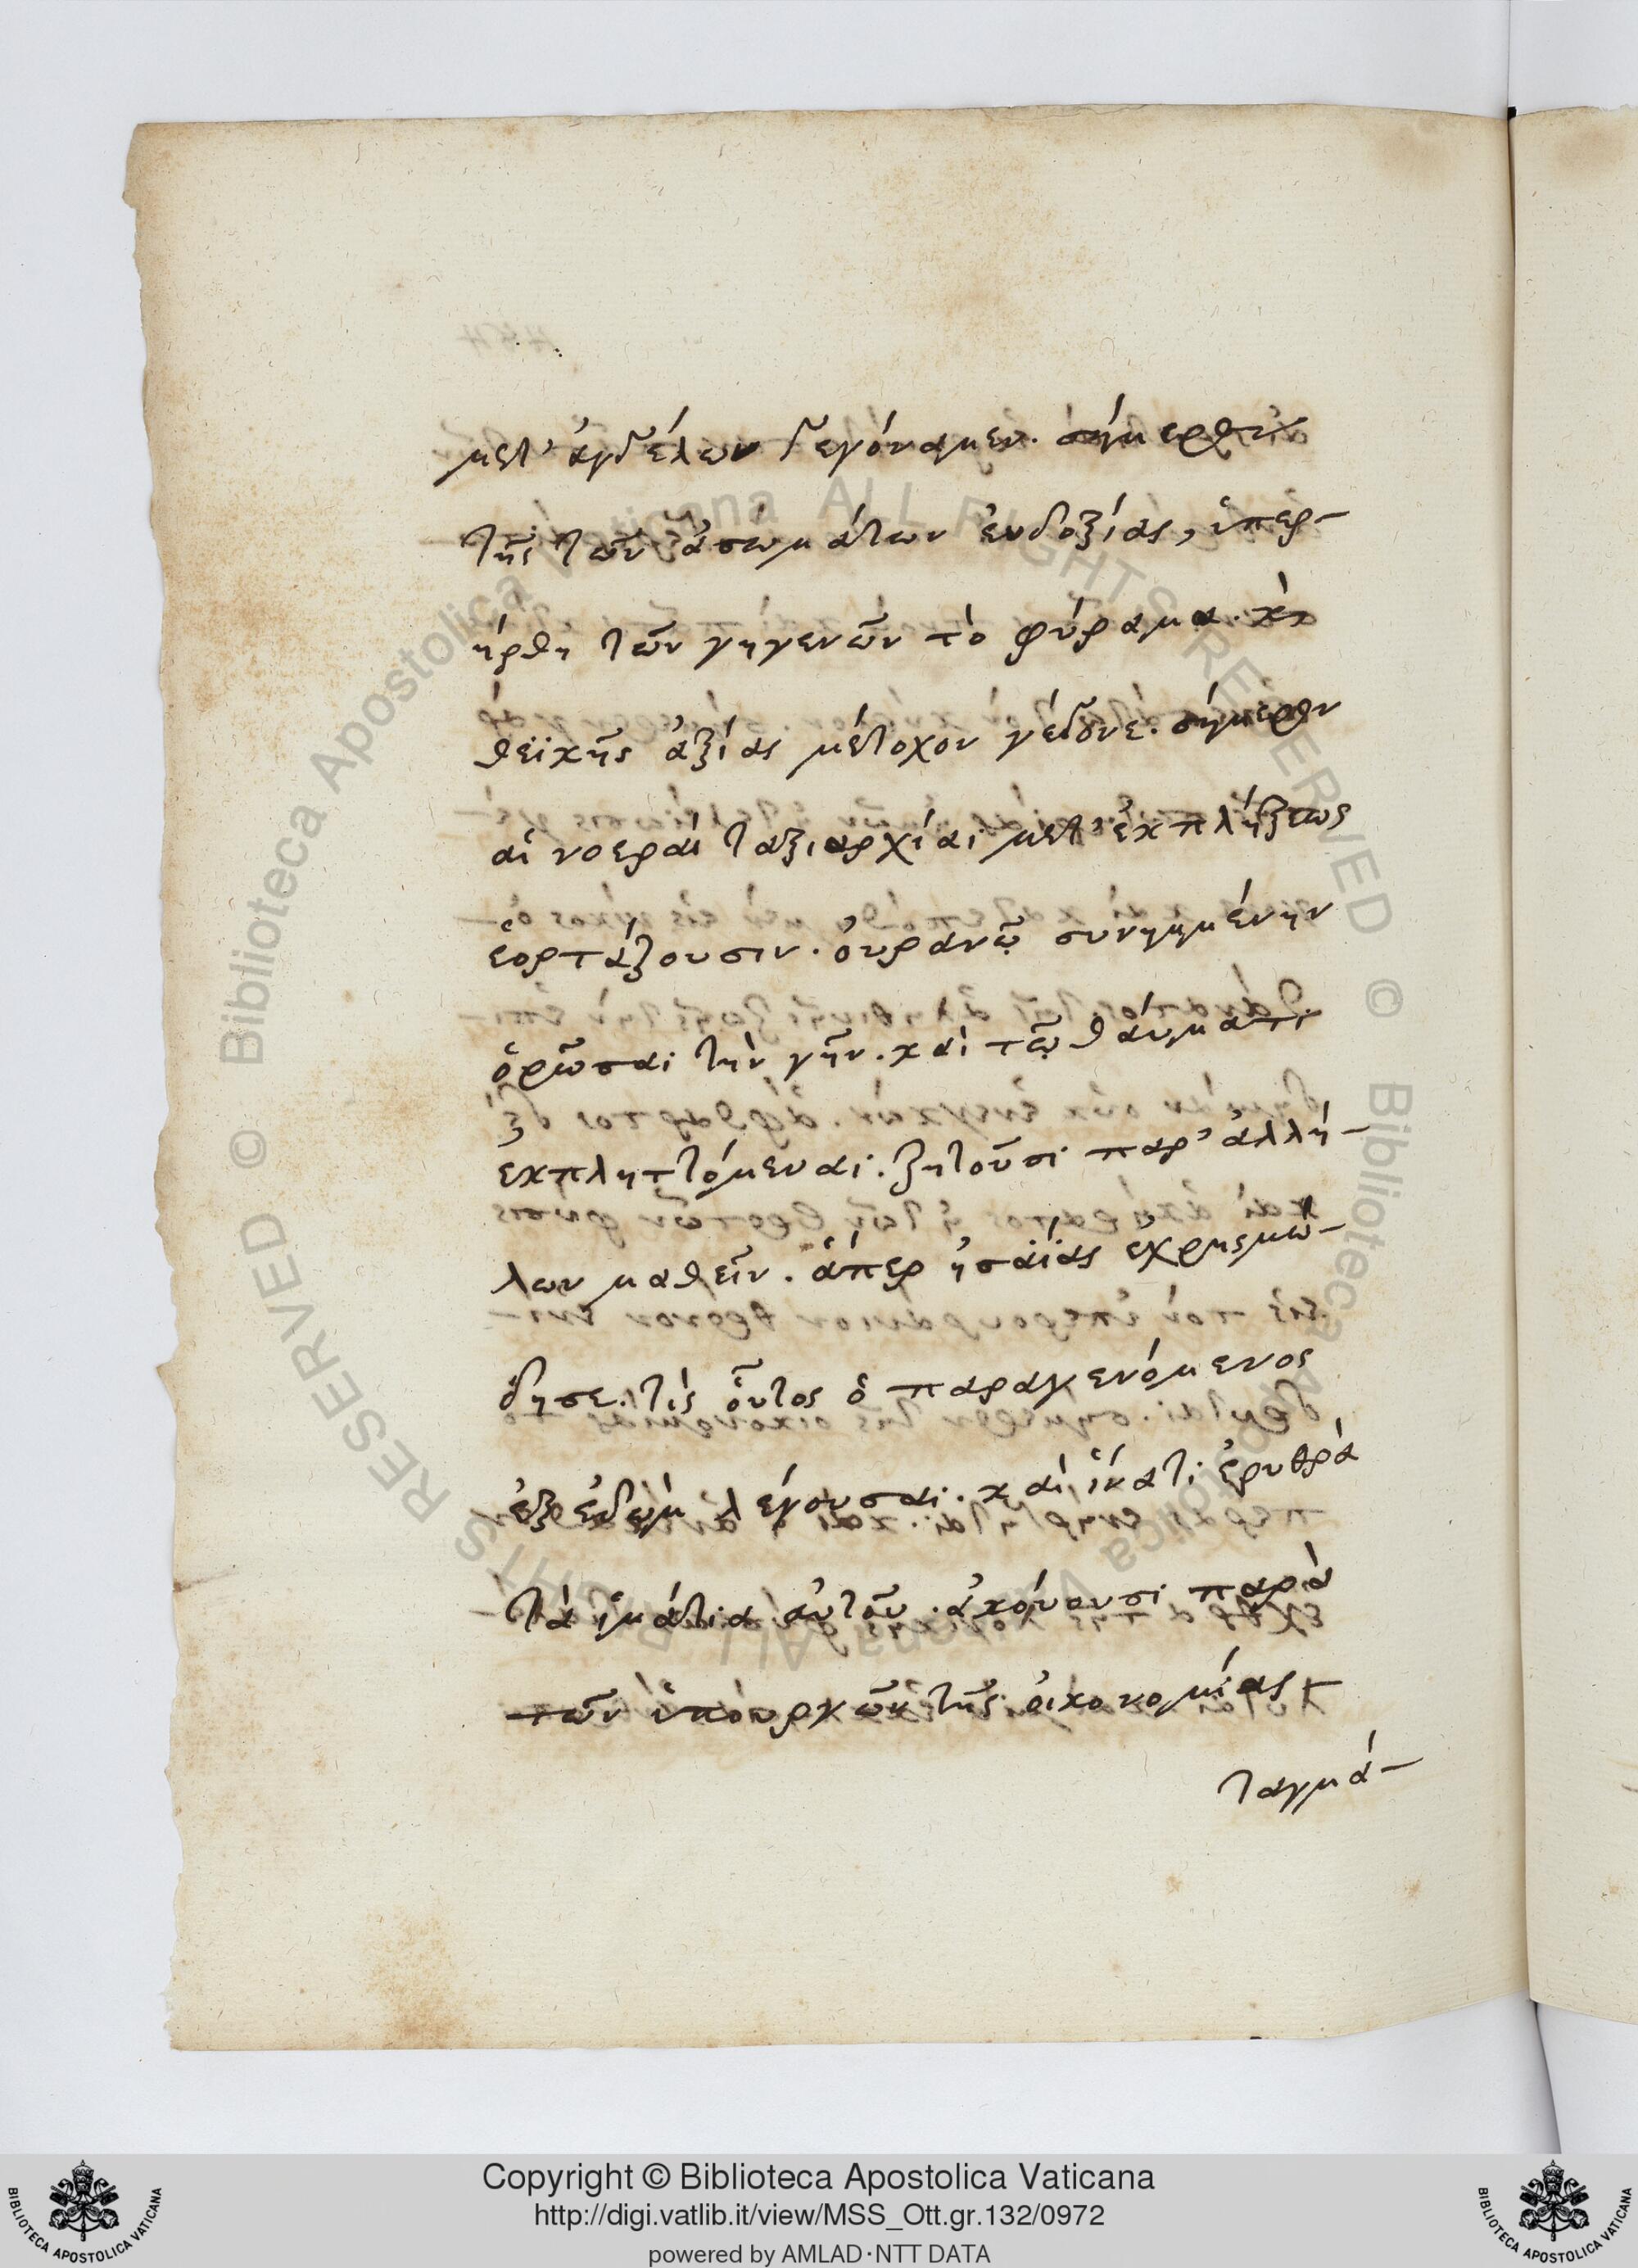 μετ' ἀγγέλων γεγόναμεν. σήμερον
τῆς τῶν ἀσωμάτων ἐνδοξίας, ὑπερ-
ήρθη τῶν γηγενῶν τὸ φύραμα. καὶ
θεϊκῆς ἀξίας μέτοχον γέγονε. σήμερον
αἱ νοεραὶ ταξιαρχίαι μετ' ἐκπλήξεως
ἑορτάζουσιν. οὐρανῷ συνημμένην
ὁρῶσαι τὴν γῆν. καὶ τῷ θαύματι
ἐκπληττόμεναι. ζητοῦσι παρ' ἀλλή-
λων μαθεῖν. ἅπερ ἡσαΐας ἐχρησμώ-
δησε. τίς οὗτος ὁ παραγενόμενος
ἐξ ἐδὼμ λέγουσαι. καὶ ἵνα τί ἐρυθρὰ
τὰ ἱμάτια αὐτοῦ. ἀκούουσι παρὰ
τῶν ὑπουργῶν τῆς οἰκονομίας
ταγμά-
Copyright © Biblioteca Apostolica Vaticana
http://digi.vatlib.it/view/MSS_Ott.gr.132/0972
powered by AMLAD·NTT DATA
BIBLIOTECA APOSTOLICA VATICANA
BIBLIOTECA APOSTOLICA VATICANA
© Biblioteca Apostolica Vaticana ALL RIGHTS RESERVED
© Biblioteca Apostolica Vaticana ALL RIGHTS RESERVED